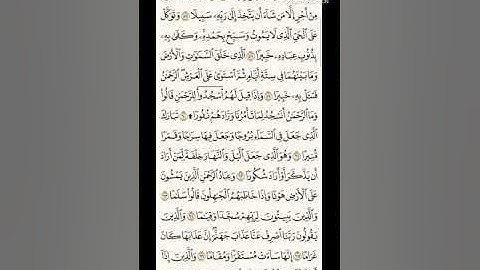 مِنْ أَجْرٍ إِلَّا مَن شَآءَ أَن يَتَّخِذَ إِلَىٰ رَبِّهِۦ سَبِيلًا ۝٥٧ وَتَوَكَّلْ
عَلَى ٱلْحَىِّ ٱلَّذِى لَا يَمُوتُ وَسَبِّحْ بِحَمْدِهِۦ ۚ وَكَفَىٰ بِهِۦ
بِذُنُوبِ عِبَادِهِۦ خَبِيرًا ۝٥٨ ٱلَّذِى خَلَقَ ٱلسَّمَٰوَٰتِ وَٱلْأَرْضَ
وَمَا بَيْنَهُمَا فِى سِتَّةِ أَيَّامٍ ثُمَّ ٱسْتَوَىٰ عَلَى ٱلْعَرْشِ ۚ ٱلرَّحْمَٰنُ
فَسْـَٔلْ بِهِۦ خَبِيرًا ۝٥٩ وَإِذَا قِيلَ لَهُمُ ٱسْجُدُوا۟ لِلرَّحْمَٰنِ قَالُوا۟
وَمَا ٱلرَّحْمَٰنُ أَنَسْجُدُ لِمَا تَأْمُرُنَا وَزَادَهُمْ نُفُورًا ۩ ۝٦٠ تَبَارَكَ
ٱلَّذِى جَعَلَ فِى ٱلسَّمَآءِ بُرُوجًا وَجَعَلَ فِيهَا سِرَٰجًا وَقَمَرًا
مُّنِيرًا ۝٦١ وَهُوَ ٱلَّذِى جَعَلَ ٱلَّيْلَ وَٱلنَّهَارَ خِلْفَةً لِّمَنْ أَرَادَ
أَن يَذَّكَّرَ أَوْ أَرَادَ شُكُورًا ۝٦٢ وَعِبَادُ ٱلرَّحْمَٰنِ ٱلَّذِينَ يَمْشُونَ
عَلَى ٱلْأَرْضِ هَوْنًا وَإِذَا خَاطَبَهُمُ ٱلْجَٰهِلُونَ قَالُوا۟ سَلَٰمًا ۝٦٣
وَٱلَّذِينَ يَبِيتُونَ لِرَبِّهِمْ سُجَّدًا وَقِيَٰمًا ۝٦٤ وَٱلَّذِينَ
يَقُولُونَ رَبَّنَا ٱصْرِفْ عَنَّا عَذَابَ جَهَنَّمَ ۖ إِنَّ عَذَابَهَا كَانَ
غَرَامًا ۝٦٥ إِنَّهَا سَآءَتْ مُسْتَقَرًّا وَمُقَامًا ۝٦٦ وَٱلَّذِينَ إِذَآ